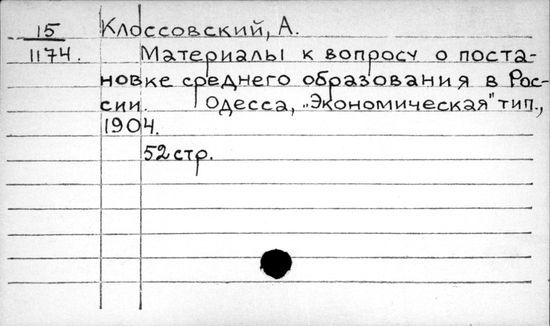 15 Клоссовский, А.
1174. Материалы к вопросу о поста-
новке среднего образования в Рос-
сии. Одесса, „Экономическая" тип.,
1904.
52 стр.